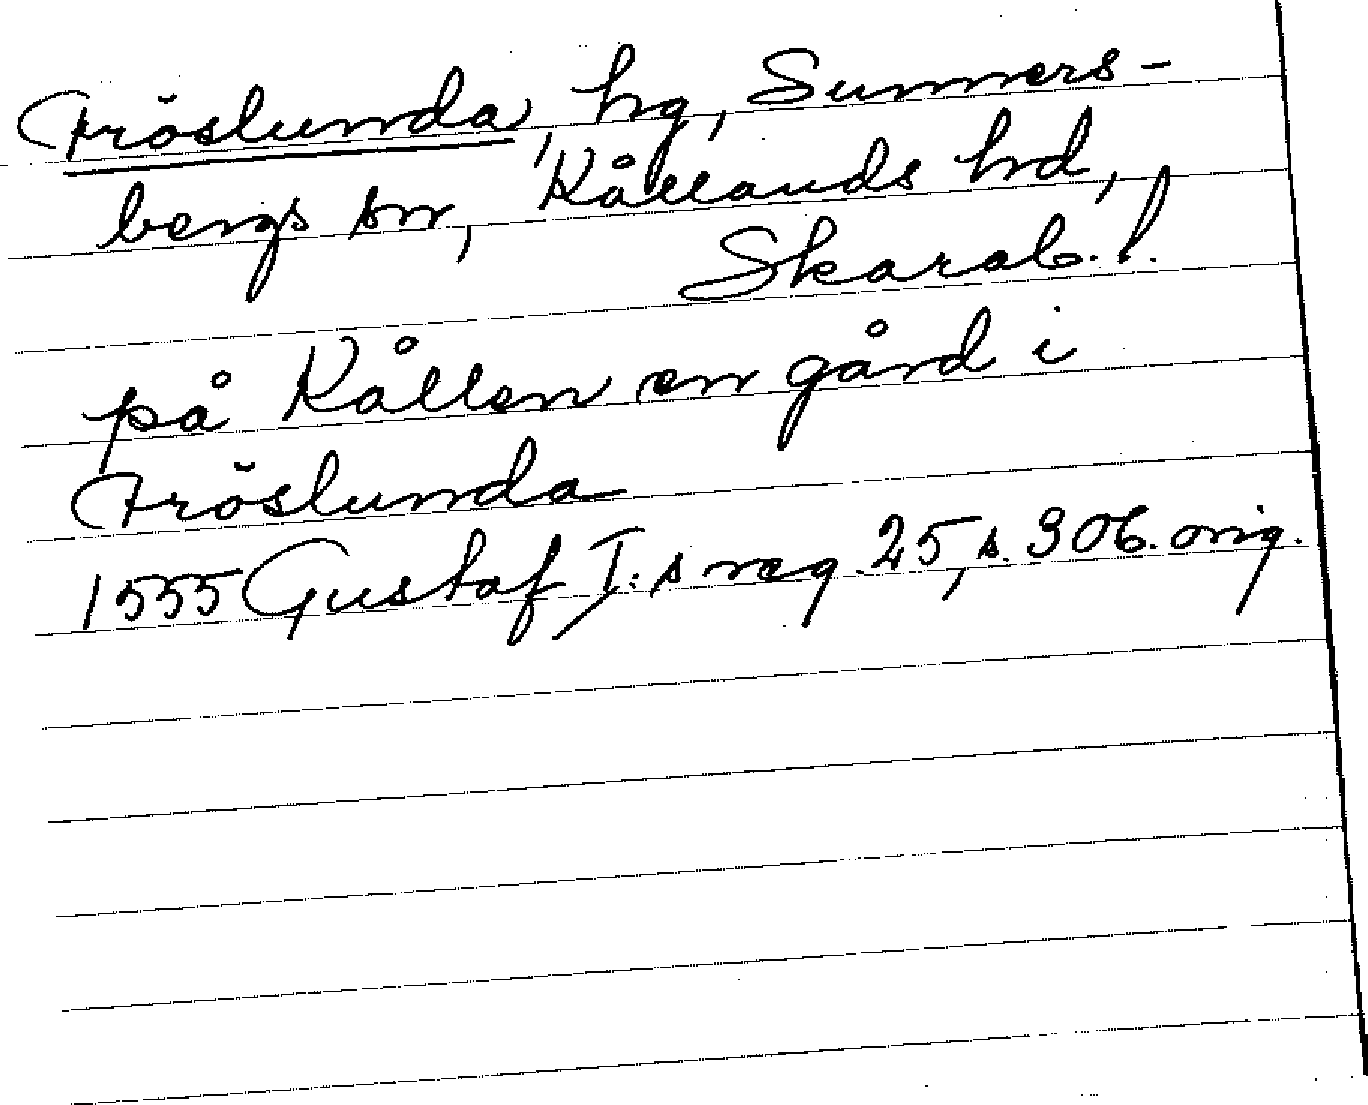 Fröslunda, hg, Sunners-
bergs sn, Kållands hd,
Skarab. l.
på Kållen en gård i
Fröslunda
1555 Gustaf I:s reg. 25, s. 306. orig.